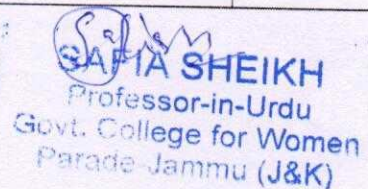 SAFIA SHEIKH
Professor-in-Urdu
Govt. College for Women
Parade-Jammu (J&K)